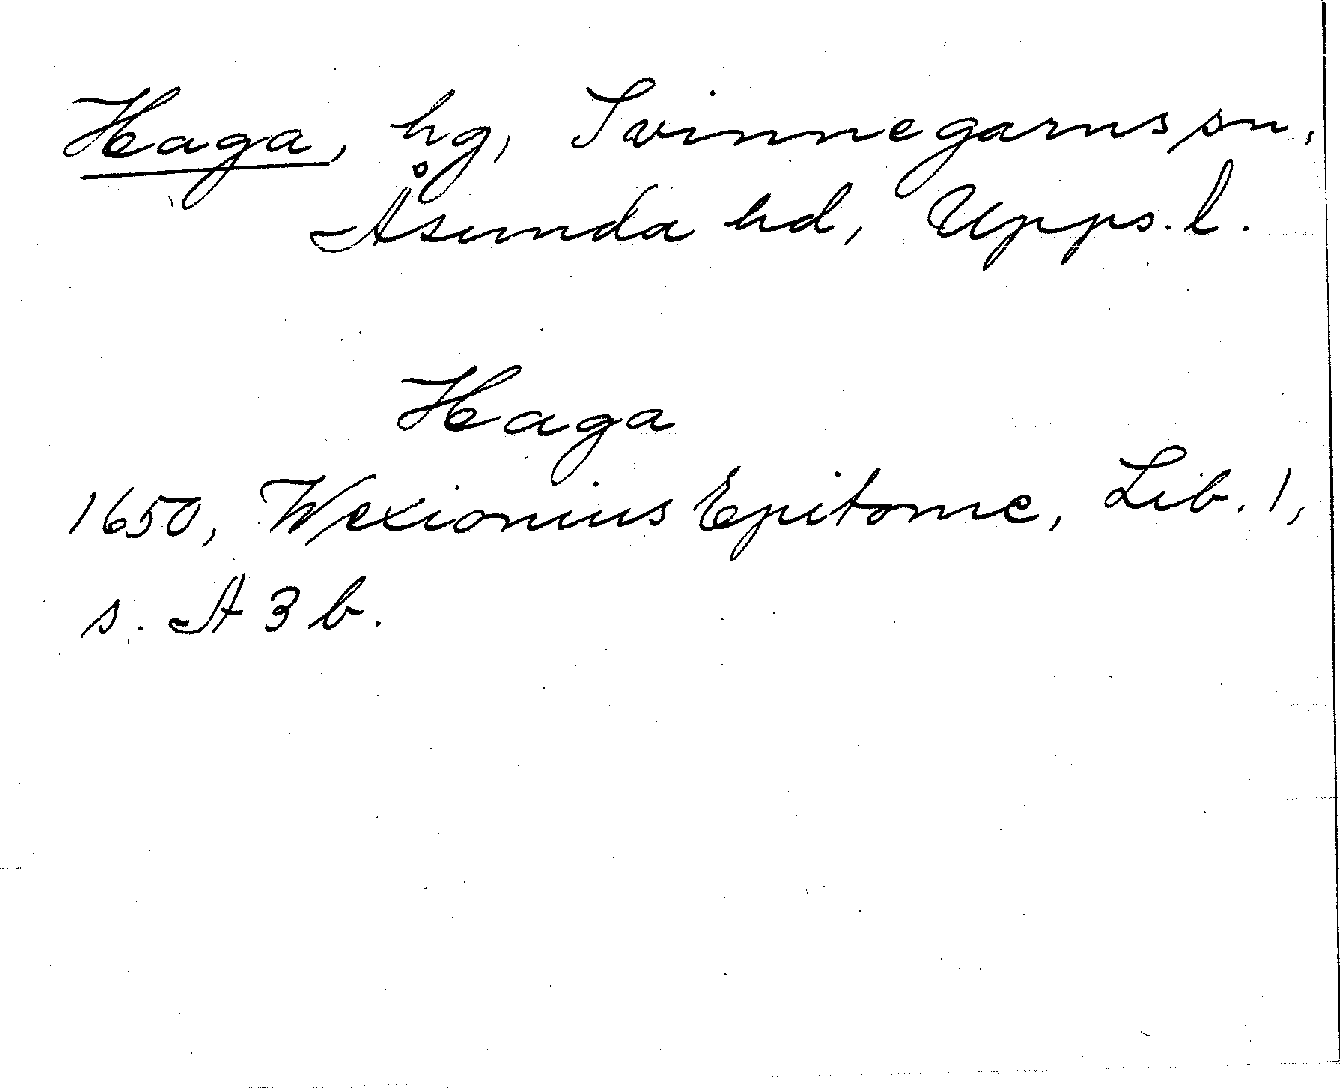 Haga, hg, Svinnegarns sn,
Åsunda hd, Upps. l.
Haga
1650, Wexionius Epitome, Lib. 1,
s. A 3 b.